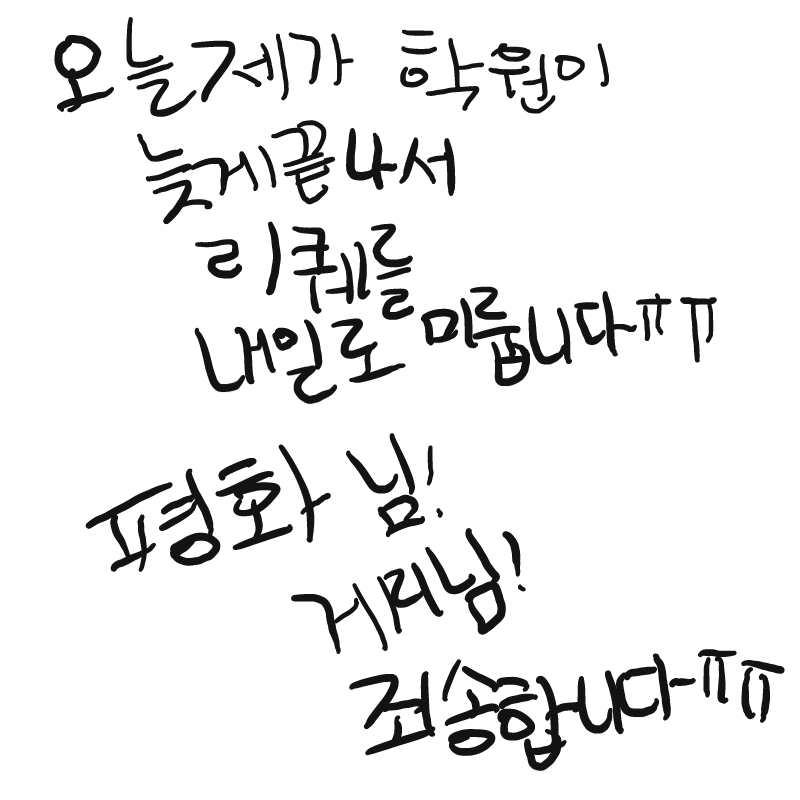 오늘제가 학원이
늦게끝나서
리퀘를
내일로 미룹니다ㅠㅠ
평화 님!
게리님!
죄송합니다ㅠㅠ